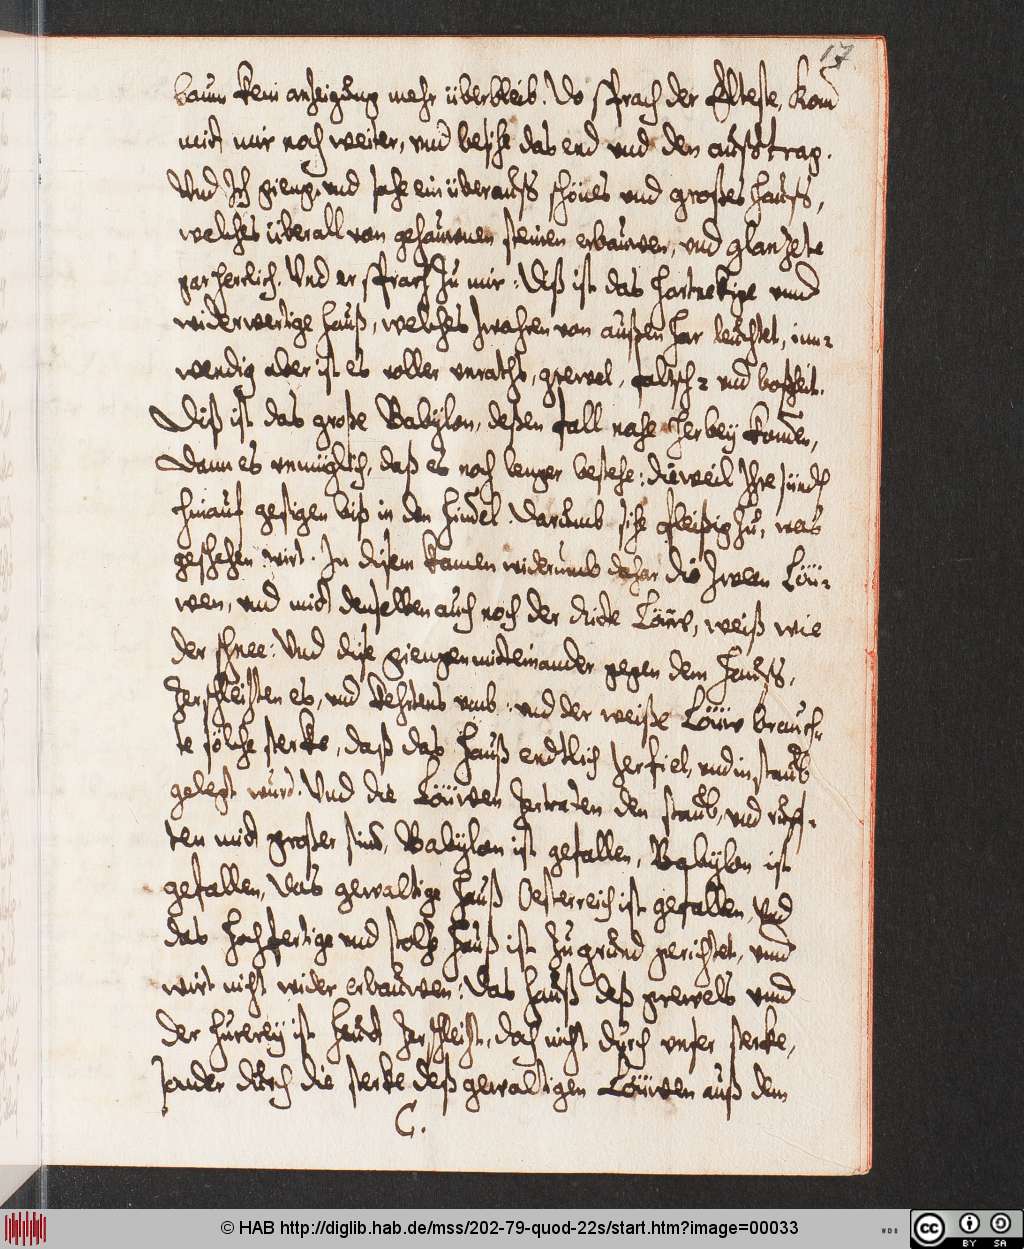 17
kaum kein anzeigung mehr überbleib. Do sprach der Elteste, kom̄
mitt mir noch weiter, vnd besihe das end vnd den außtrag.
Vnd Ich gieng, vnd sahe ein überauß schönes vnd großes hauß,
welches überall von gehauwenen steinen erbauwen, vnd glanzete
gar herrlich. Vnd er sprach zu mir: Diß ist das hartnekige vnnd
widerwertige Hauß, welches zwahren von außen har leuchtet, inn-
wendig aber ist es voller vnraths, grewel, falsch- vnd boßheit.
Diß ist das große Babylon, deßen fall nahe herbey kom̄en,
Dann es vnmüglich, daß es noch lenger bestehe: dieweil Ihre sünden
hinauf gestigen biß in den Him̄el. Darumb sihe fleißig zu, was
geschehen wirt. In disem kamen widerumb dahar die zween Löü-
wen, vnd mitt denselben auch noch der dritte Löüw, weiß wie
der schnee: Vnd dise giengen mitteinander gegen dem Hauß,
zerschleißten es, vnd kehrtens vmb: vnd der weiße Löüw brauch-
te sölche sterke, daß das Hauß endtlich zerfiel, vnd in staub
gelegt wurd. Vnd die Löüwen zertraten den staub, vnd rüff-
ten mitt großer stim̄, Babylon ist gefallen, Babylon ist
gefallen, Das gewaltige Hauß Oesterreich ist gefallen, Vnd
das Hochfertige vnd stoltz Hauß ist zu grund gerichtet, vnnd
wirt nicht wider erbauwen: Das Hauß deß grewels vnnd
der Hurerey ist Heutt zerschleißt, doch nicht durch vnser sterke,
sonder durch die sterke deß gewaltigen Löüwen auß dem
C.
© HAB http://diglib.hab.de/mss/202-79-quod-22s/start.htm?image=00033
WDB
cc BY SA